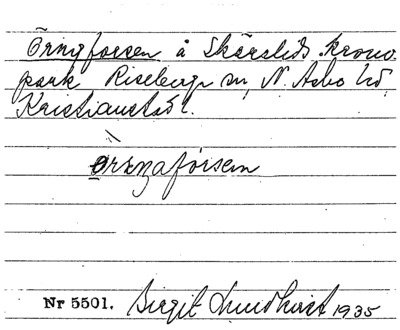 Örnyforsen å Skärsleds krono
park Riseberga sn, N. Asbo hd,
Kristianstads l.
ørnyaforsen
Nr 5501. Birgit Lundkvist 1935